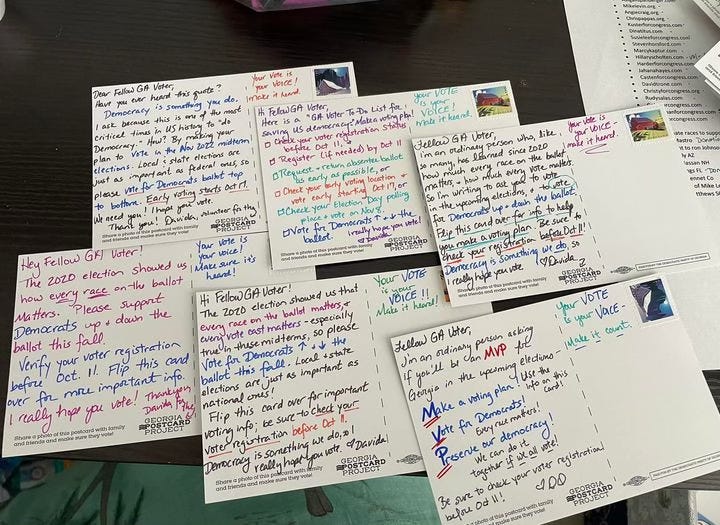 Mikelevin.org
Angiecraig.com
Chrispappas.org
Kusterforcongress.com
Dinatitus.com
Susieleeforcongress.com
Stevenhorsford.com
Marcykaptur.com
Hillaryscholten.com
Harderforcongress.com
Jahanahayes.com
Castenforcongress.com
Davidtrone.com
Christyforcongress.org
Rudysalas.com
Dear Fellow GA Voter,
Have you ever heard this quote?
Democracy is something you do.
I ask because this is one of the most
critical times in US history &
Democracy - How? By making your
plan to vote in the Nov 2022 midterm
elections. Local & state elections are
just as important as federal ones, so
please vote for Democrats ballot top
to bottom. Early voting starts Oct 17.
We need you! I hope you vote.
Thank you! Davida, volunteer
Share a photo of this postcard with family
and friends and make sure they vote!
GEORGIA
POSTCARD
PROJECT
Your vote is
your VOICE!
Make it heard.
Hi Fellow GA Voter,
Here is a "GA Voter To Do List for
Saving US democracy: Make a voting plan!
Check your voter registration status
before Oct 11. &
Register (if needed) by Oct 11
Request & return absentee ballot
as early as possible, or
Check your early voting location &
vote early starting Oct 17, or
Check your Election Day polling
place & vote on Nov 8.
Vote for Democrats ↑ & ↓ the
ballot. I really hope you vote!
Davida
Share a photo of this postcard with family
and friends and make sure they vote!
GEORGIA
POSTCARD
PROJECT
Your VOTE
is your
VOICE!
Make it heard.
Fellow GA Voter,
I'm an ordinary person who, like
so many, has learned since 2020
how much every race on the ballot
matters, & how much every vote matters.
So I'm writing to ask you to vote
in the upcoming elections, & to vote
for Democrats up & down the ballot.
Flip this card over for info to help
you make a voting plan. Be sure to
check your registration before Oct 11!
Democracy is something we do, so
I really hope you vote. ♡Davida
GEORGIA
POSTCARD
PROJECT
Your VOTE
is your VOICE.
make it heard.
Hey Fellow GA Voter!
The 2020 election showed us
how every race on the ballot
Matters. Please support
Democrats up & down the
ballot this fall.
Verify your voter registration
before Oct. 11. Flip this card
over for more important info.
I really hope you vote! Thank you
Davida
Share a photo of this postcard with family
and friends and make sure they vote!
GEORGIA
POSTCARD
PROJECT
Your vote is
your voice!
Make sure it's
heard!
Hi Fellow GA Voter!
The 2020 election showed us that
every race on the ballot matters, &
every vote cast matters - especially
true in these midterms, so please
Vote for Democrats ↑ & ↓ the
ballot this fall. Local & state
elections are just as important as
national ones!
Flip this card over for important
voting info; be sure to check your
voter registration before Oct 11.
Democracy is something we do, so I
really hope you vote. ♡Davida
Share a photo of this postcard with family
and friends and make sure they vote!
GEORGIA
POSTCARD
PROJECT
Your VOTE
is your
VOICE!!
Make it heard!
Fellow GA Voter,
I'm an ordinary person asking
if you'll be an MVP for
Georgia in the upcoming elections -
Make a voting plan! Use the
info on this
card!
Vote for Democrats!
Every race matters!
Preserve our democracy!
We can do it
together if we all vote!
Be sure to check your voter registration
before Oct 11! ♡DD
Share a photo of this postcard with family
and friends and make sure they vote!
GEORGIA
POSTCARD
PROJECT
Your VOTE
is your VOICE-
Make it count.